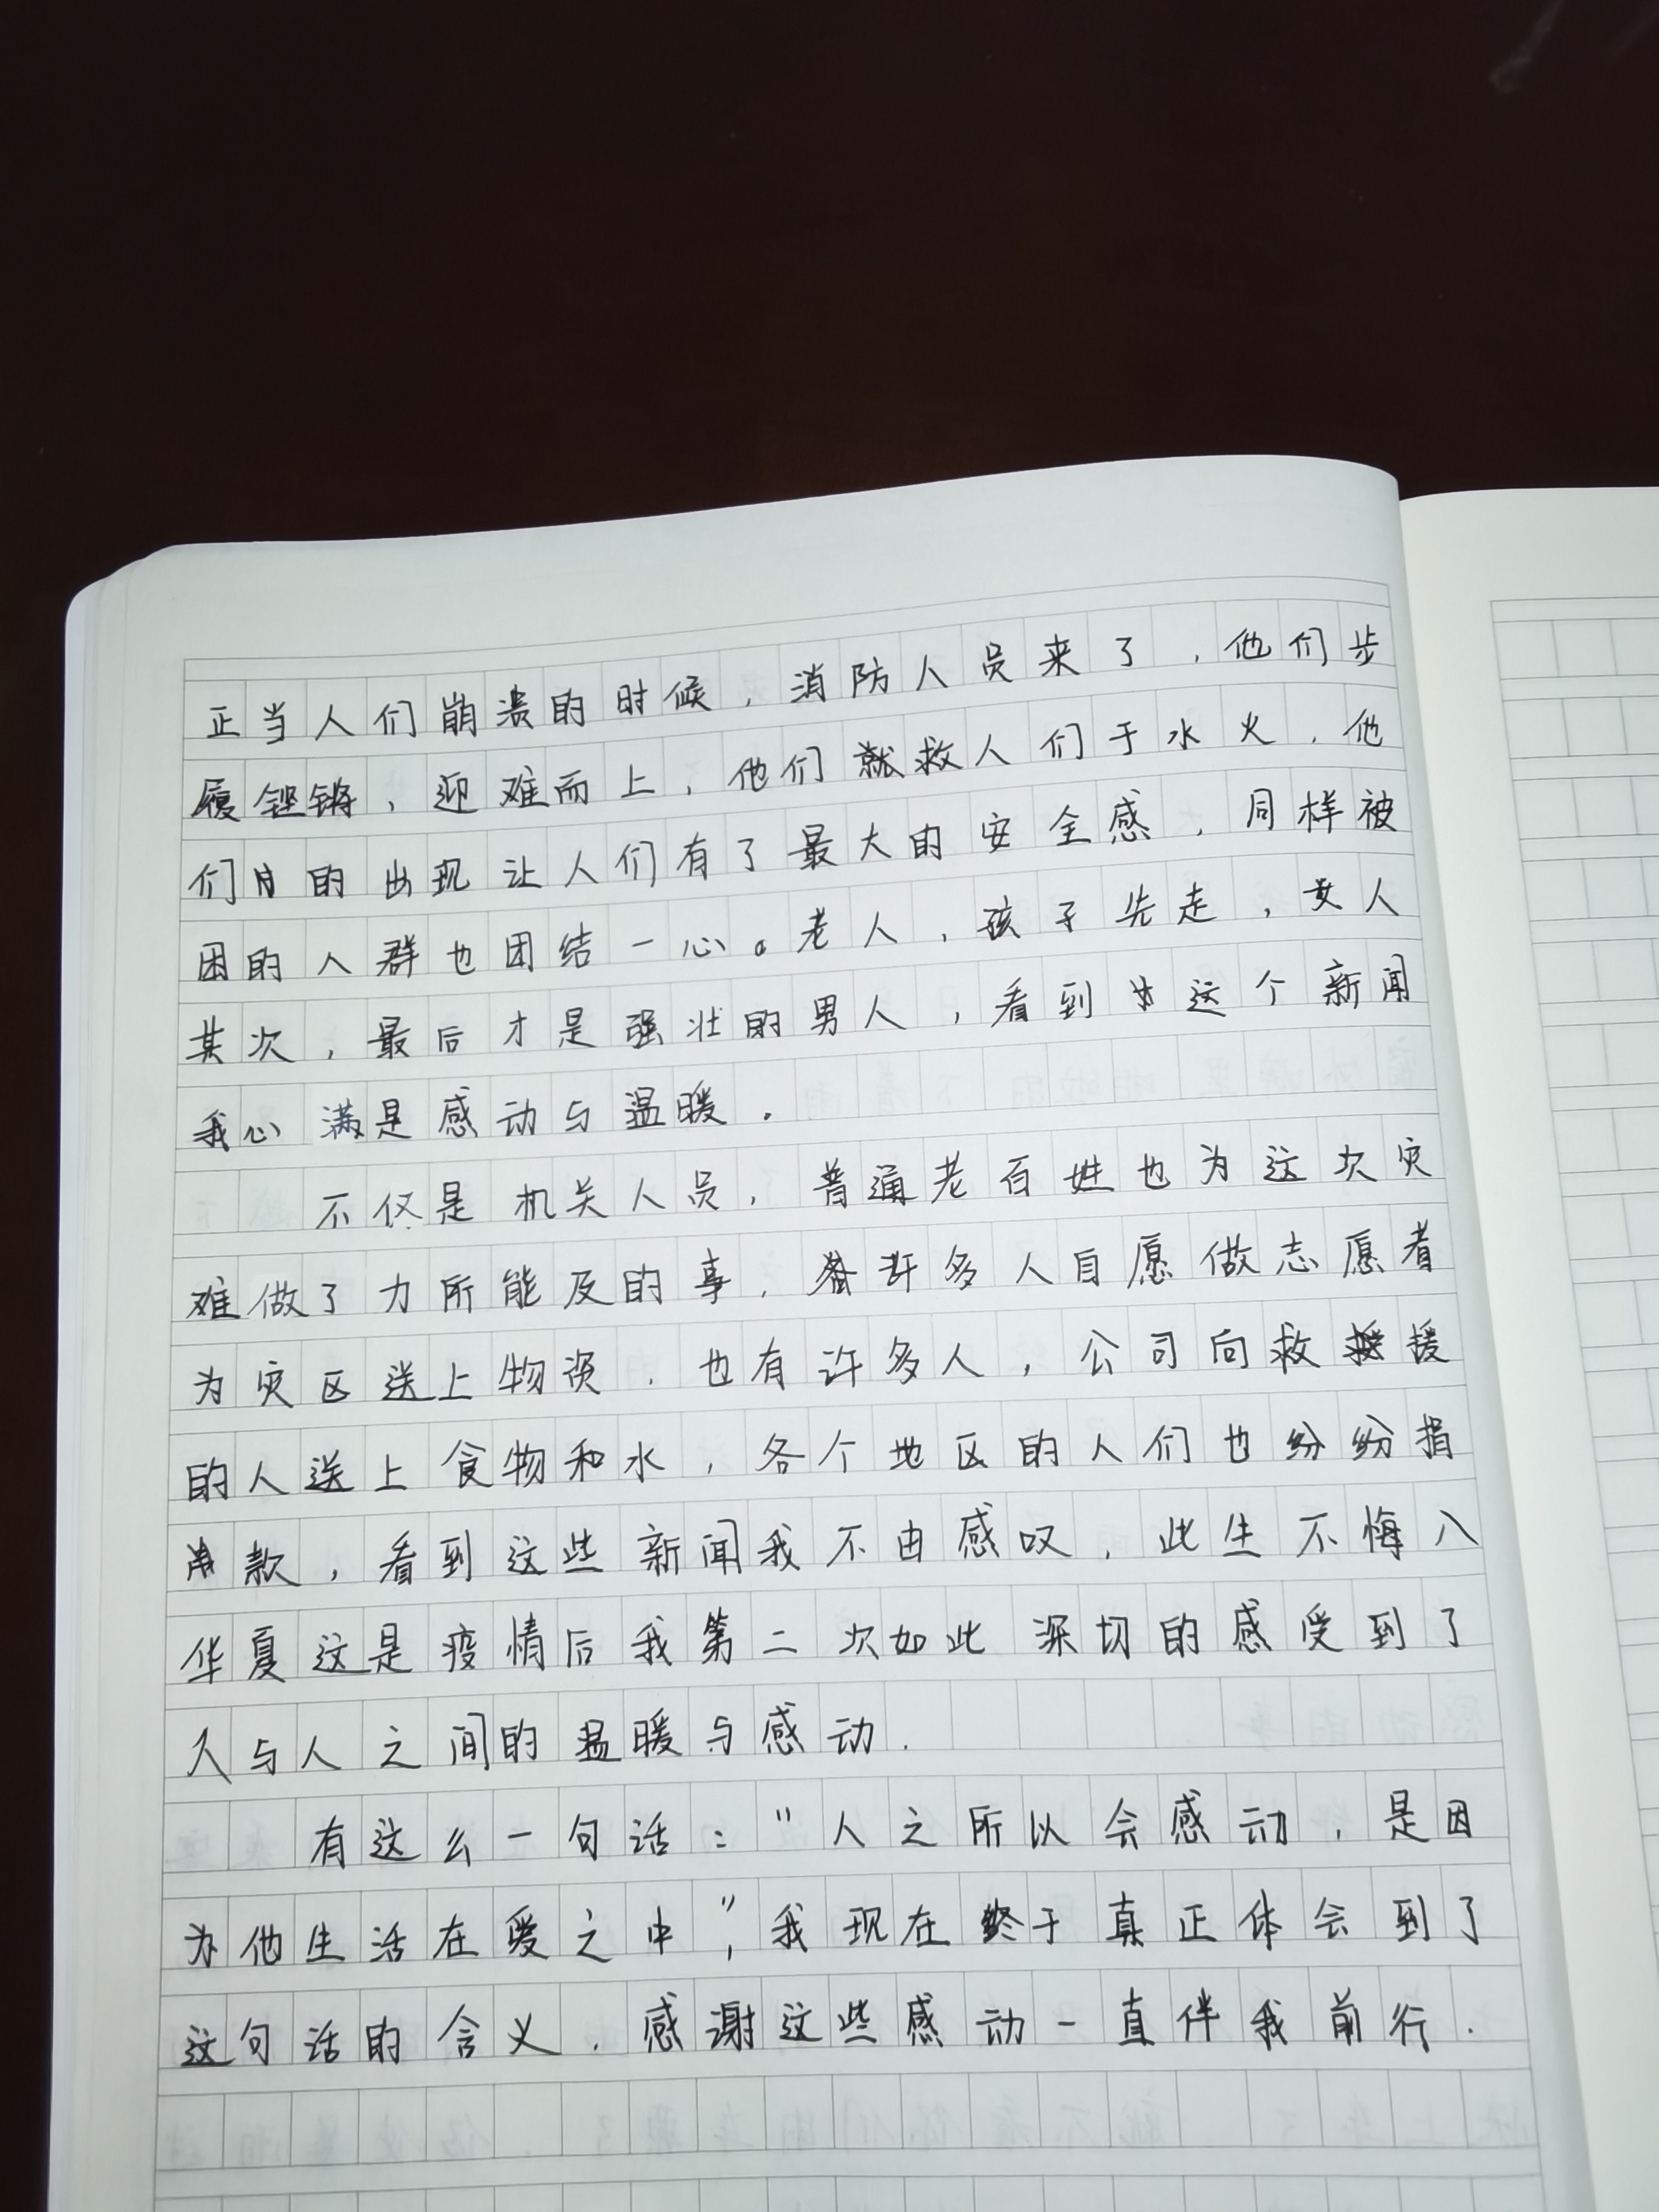 正当人们崩溃的时候，消防人员来了，他们步
履铿锵，迎难而上，他们就救人们于水火．他
们的出现让人们有了最大的安全感，同样被
困的人群也团结一心。老人，孩子先走，女人
其次，最后才是强壮的男人，看到这个新闻
我心满是感动与温暖．
不仅是机关人员，普通老百姓也为这次灾
难做了力所能及的事，许多人自愿做志愿者
为灾区送上物资．也有许多人，公司向救援
的人送上食物和水，各个地区的人们也纷纷捐
款，看到这些新闻我不由感叹，此生不悔入
华夏这是疫情后我第二次如此深切的感受到了
人与人之间的温暖与感动．
有这么一句话："人之所以会感动，是因
为他生活在爱之中"，我现在终于真正体会到了
这句话的含义．感谢这些感动一直伴我前行．